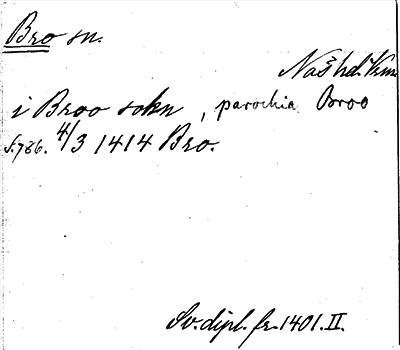 Bro sn.
Näshd. Vrml.
i Broo sokn, parochia Broo
s. 786. 4/3 1414 Bro.
Sv. dipl. fr. 1401. II.